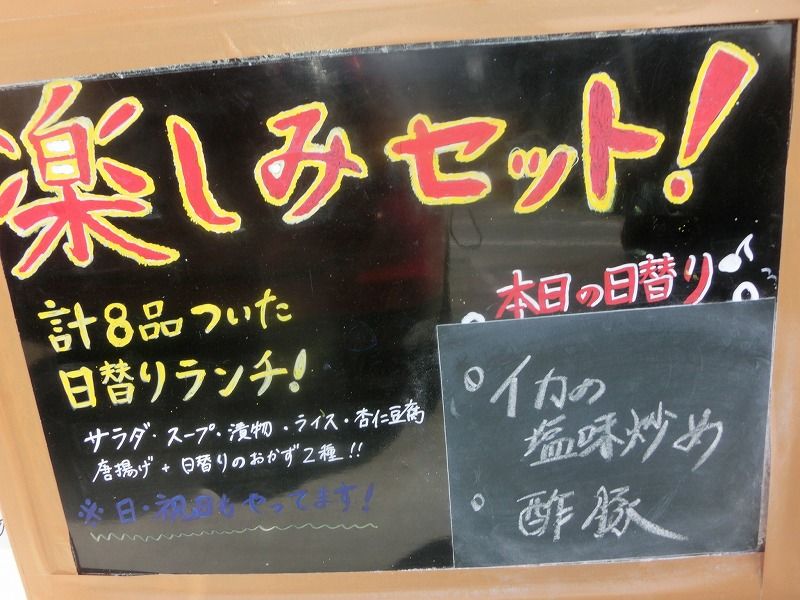 楽しみセット!
計8品ついた
日替りランチ!
サラダ・スープ・漬物・ライス・杏仁豆腐
唐揚げ+日替りのおかず2種!!
※日・祝日もやってます!
本日の日替り♪
○イカの
塩味炒め
○酢豚